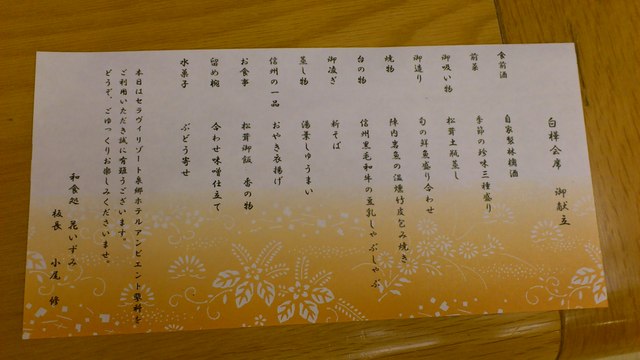 白樺会席 御献立
食前酒 自家製林檎酒
前菜 季節の珍味三種盛り
御吸い物 松茸土瓶蒸し
御造り 旬の鮮魚盛り合わせ
焼物 陣内岩魚の温燻竹皮包み焼き
台の物 信州黒毛和牛の豆乳しゃぶしゃぶ
御凌ぎ 新そば
蒸し物 湯葉しゅうまい
信州の一品 おやき衣揚げ
お食事 松茸御飯 香の物
留め椀 合わせ味噌仕立て
水菓子 ぶどう寄せ
本日はセラヴィリゾート泉郷ホテルアンビエント蓼科を
ご利用いただき誠に有難うございます。
どうぞ、ごゆっくりお楽しみくださいませ。
和食処 花いずみ
板長 小尾 修